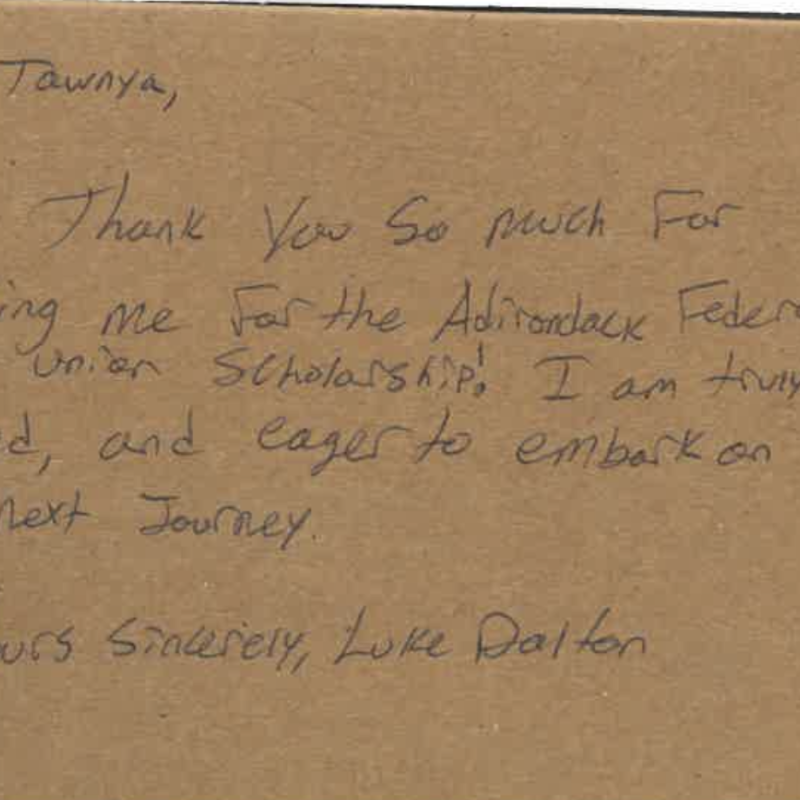 Tawnya,
Thank You So much For
ing me For the Adirondack Feder
union Scholarship! I am truly
d, and eager to embark on
next Journey.
urs Sincerely, Luke Dalton